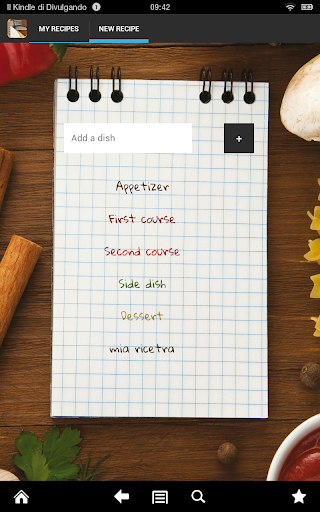 Il Kindle di Divulgando 1 09:42
MY RECIPES NEW RECIPE
Add a dish +
Appetizer
First course
Second course
Side dish
Dessert
mia ricetra